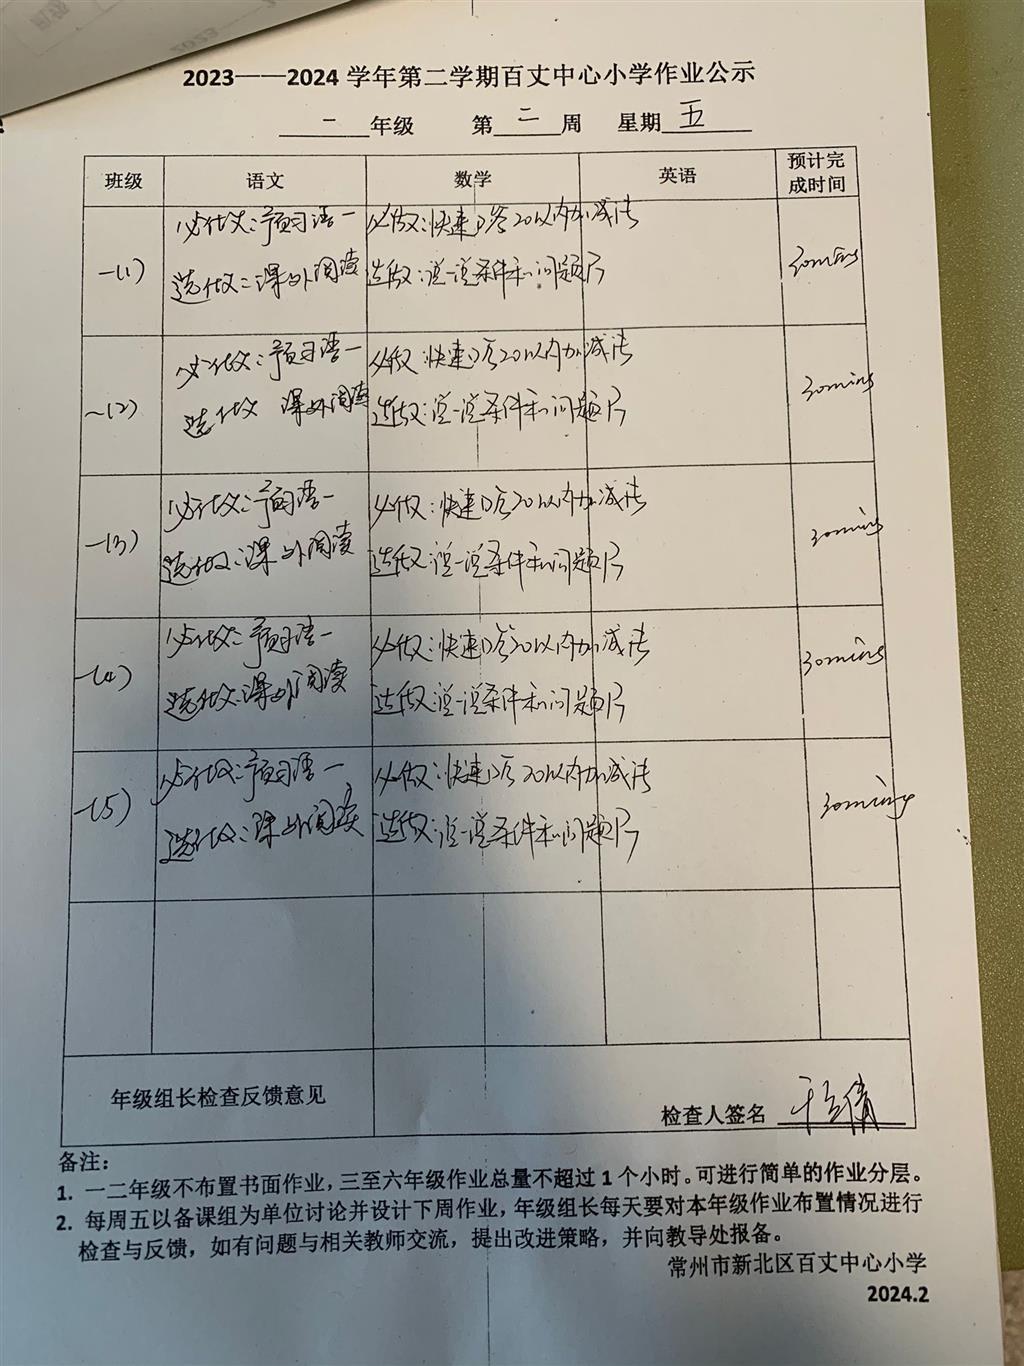 2023——2024 学年第二学期百丈中心小学作业公示
一年级 第二周 星期五
班级 语文 数学 英语 预计完成时间
一(1) 必做:预习语一 必做:快速口答20以内加减法 30mins
选做:课外阅读 选做:说一说条件和问题
一(2) 必做:预习语一 必做:快速口答20以内加减法 30mins
选做 课外阅读 选做:说一说条件和问题
一(3) 必做:预习语一 必做:快速口答20以内加减法 30mins
选做:课外阅读 选做:说一说条件和问题
一(4) 必做:预习语一 必做:快速口答20以内加减法 30mins
选做:课外阅读 选做:说一说条件和问题
一(5) 必做:预习语一 必做:快速口答20以内加减法 30mins
选做:课外阅读 选做:说一说条件和问题
年级组长检查反馈意见 检查人签名
备注:
1. 一二年级不布置书面作业,三至六年级作业总量不超过 1 个小时。可进行简单的作业分层。
2. 每周五以备课组为单位讨论并设计下周作业,年级组长每天要对本年级作业布置情况进行
检查与反馈,如有问题与相关教师交流,提出改进策略,并向教导处报备。
常州市新北区百丈中心小学
2024.2